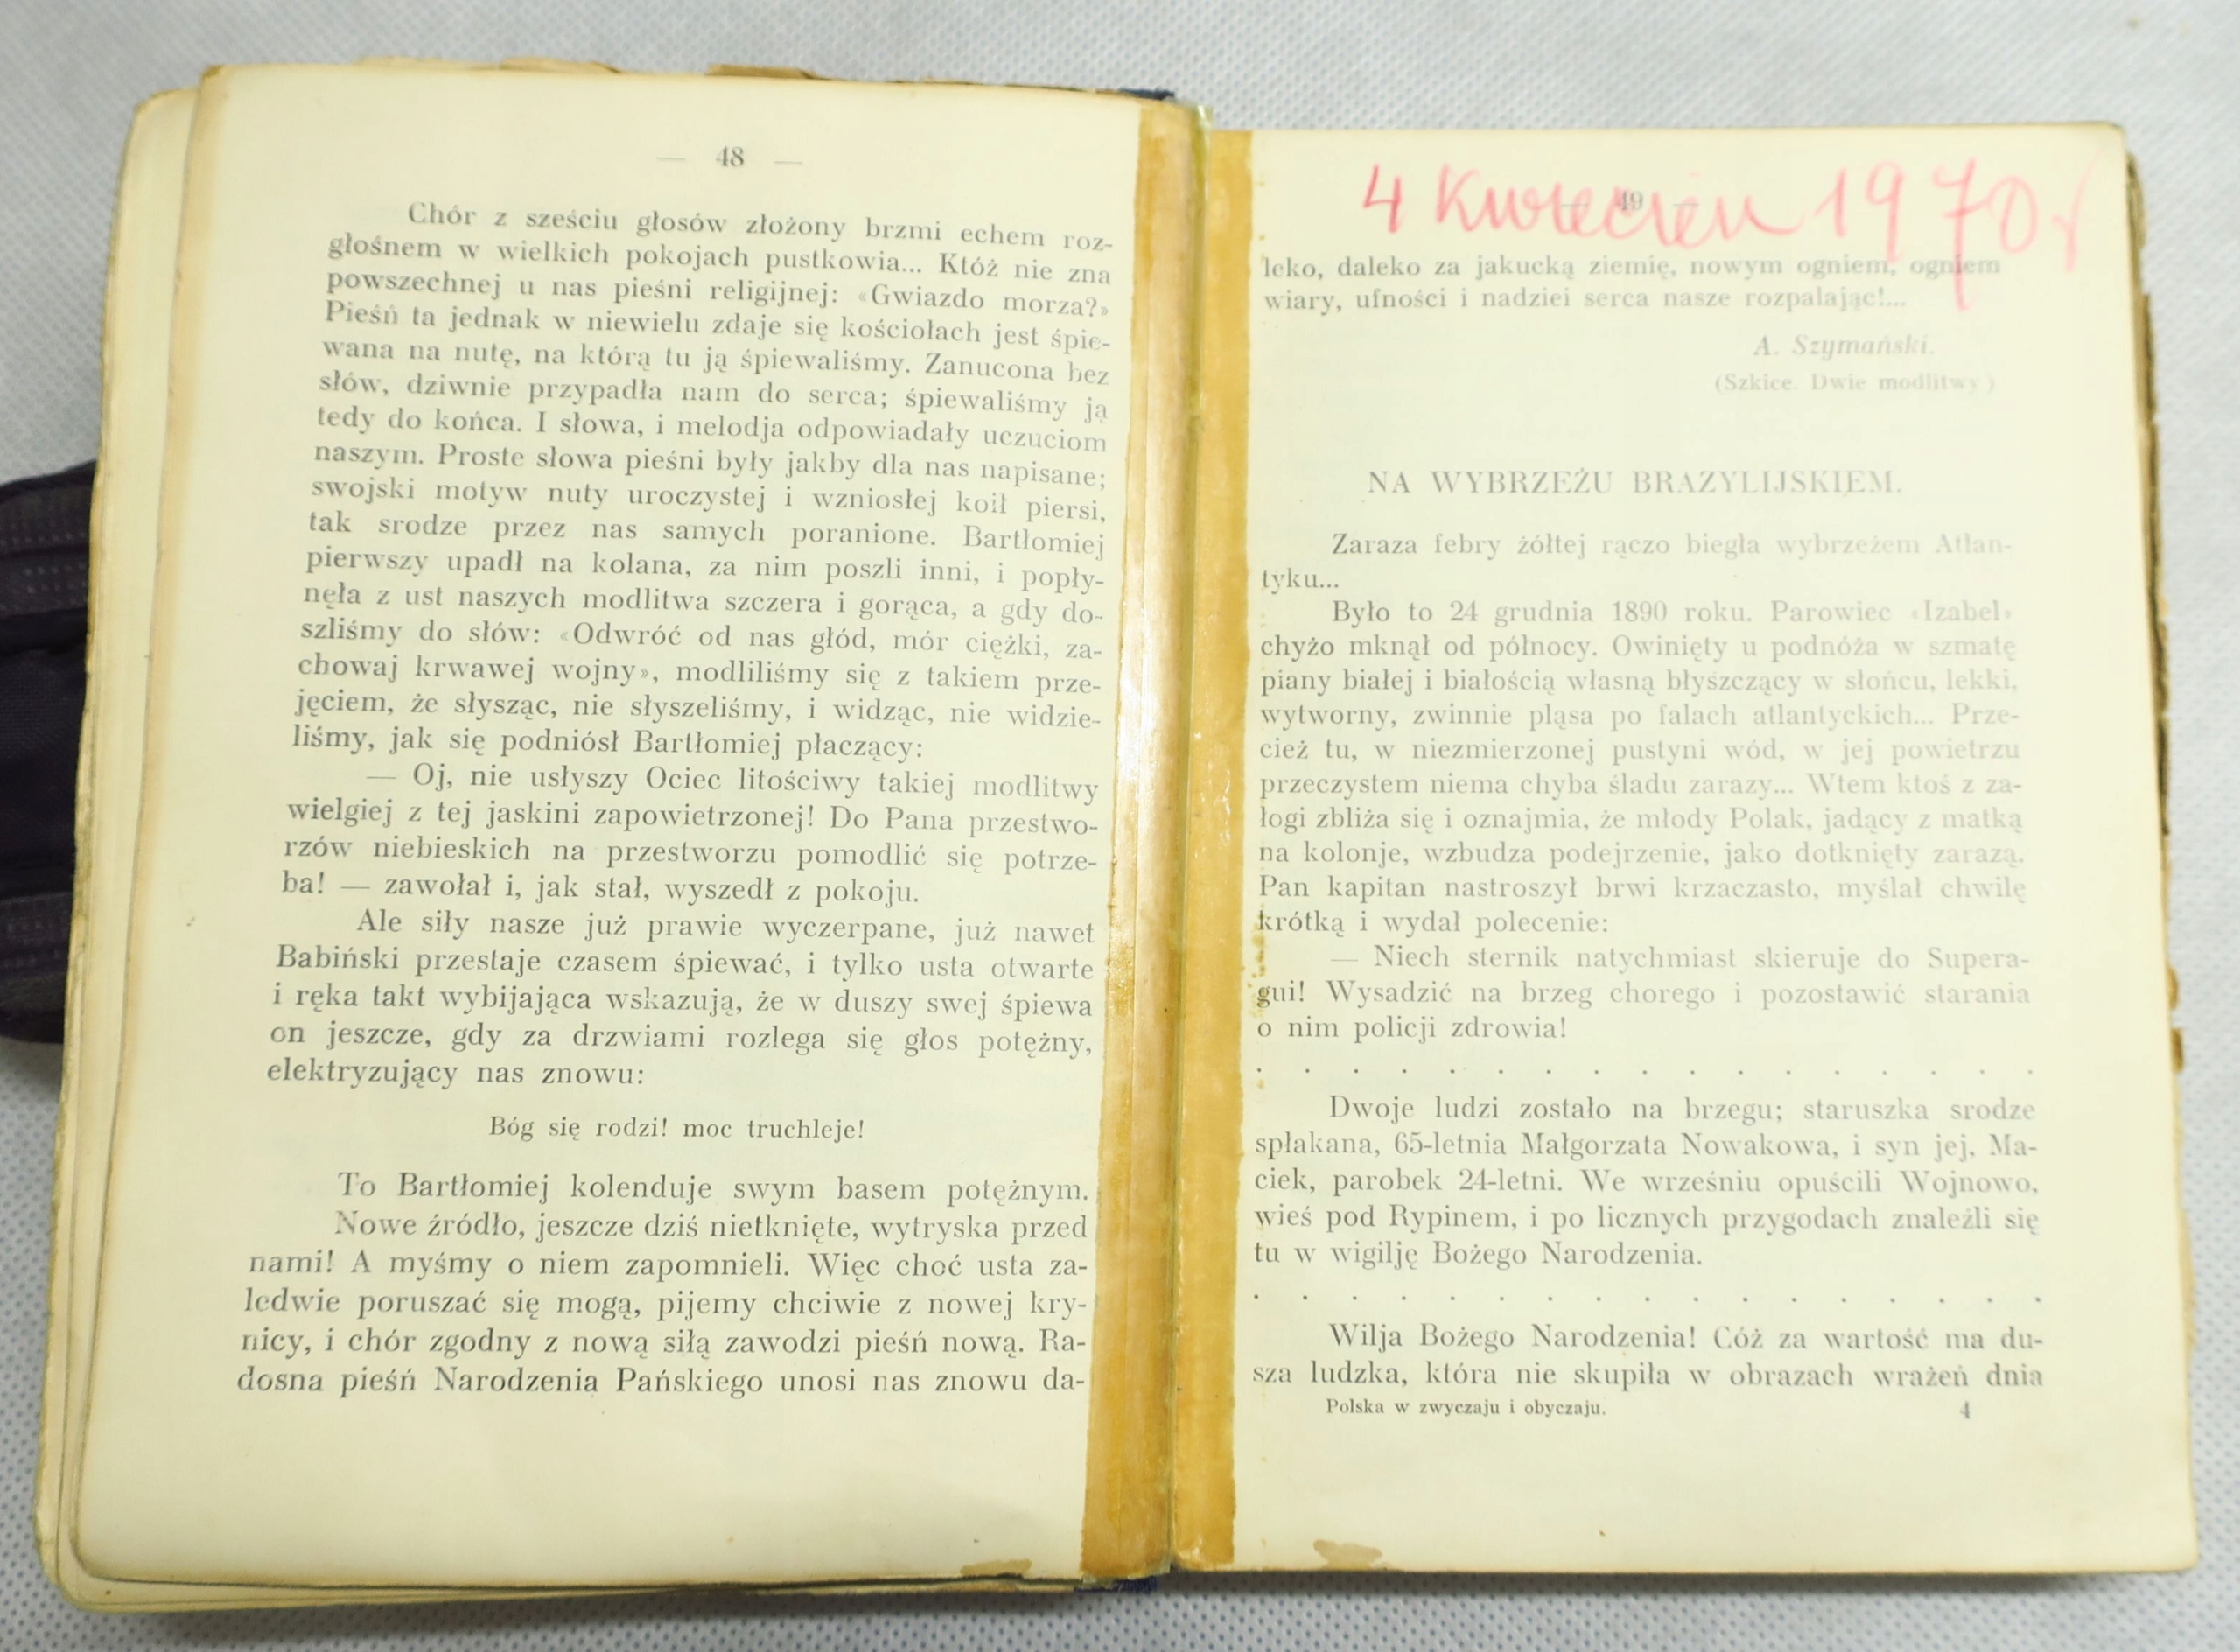 — 48 —
Chór z sześciu głosów złożony brzmi echem roz-
głośnem w wielkich pokojach pustkowia... Któż nie zna
powszechnej u nas pieśni religijnej: «Gwiazdo morza?»
Pieśń ta jednak w niewielu zdaje się kościołach jest śpie-
wana na nutę, na którą tu ją śpiewaliśmy. Zanucona bez
słów, dziwnie przypadła nam do serca; śpiewaliśmy ją
tedy do końca. I słowa, i melodja odpowiadały uczuciom
naszym. Proste słowa pieśni były jakby dla nas napisane;
swojski motyw nuty uroczystej i wzniosłej koił piersi,
tak srodze przez nas samych poranione. Bartłomiej
pierwszy upadł na kolana, za nim poszli inni, i popły-
nęła z ust naszych modlitwa szczera i gorąca, a gdy do-
szliśmy do słów: «Odwróć od nas głód, mór ciężki, za-
chowaj krwawej wojny», modliliśmy się z takiem prze-
jęciem, że słysząc, nie słyszeliśmy, i widząc, nie widzie-
liśmy, jak się podniósł Bartłomiej płaczący:
— Oj, nie usłyszy Ociec litościwy takiej modlitwy
wielgiej z tej jaskini zapowietrzonej! Do Pana przestwo-
rzów niebieskich na przestworzu pomodlić się potrze-
ba! — zawołał i, jak stał, wyszedł z pokoju.
Ale siły nasze już prawie wyczerpane, już nawet
Babiński przestaje czasem śpiewać, i tylko usta otwarte
i ręka takt wybijająca wskazują, że w duszy swej śpiewa
on jeszcze, gdy za drzwiami rozlega się głos potężny,
elektryzujący nas znowu:
Bóg się rodzi! moc truchleje!
To Bartłomiej kolenduje swym basem potężnym.
Nowe źródło, jeszcze dziś nietknięte, wytryska przed
nami! A myśmy o niem zapomnieli. Więc choć usta za-
ledwie poruszać się mogą, pijemy chciwie z nowej kry-
nicy, i chór zgodny z nową siłą zawodzi pieśń nową. Ra-
dosna pieśń Narodzenia Pańskiego unosi nas znowu da-
4 Kwiecień 1970 r
— 49 —
leko, daleko za jakucką ziemię, nowym ogniem, ogniem
wiary, ufności i nadziei serca nasze rozpalając!...
A. Szymański.
(Szkice. Dwie modlitwy.)
NA WYBRZEŻU BRAZYLIJSKIEM.
Zaraza febry żółtej rączo biegła wybrzeżem Atlan-
tyku...
Było to 24 grudnia 1890 roku. Parowiec «Izabel»
chyżo mknął od północy. Owinięty u podnóża w szmatę
piany białej i białością własną błyszczący w słońcu, lekki,
wytworny, zwinnie pląsa po falach atlantyckich... Prze-
cież tu, w niezmierzonej pustyni wód, w jej powietrzu
przeczystem niema chyba śladu zarazy... Wtem ktoś z za-
łogi zbliża się i oznajmia, że młody Polak, jadący z matką
na kolonje, wzbudza podejrzenie, jako dotknięty zarazą.
Pan kapitan nastroszył brwi krzaczasto, myślał chwilę
krótką i wydał polecenie:
— Niech sternik natychmiast skieruje do Supera-
gui! Wysadzić na brzeg chorego i pozostawić starania
o nim policji zdrowia!
. . . . . . . . . . . . . . . . .
Dwoje ludzi zostało na brzegu; staruszka srodze
spłakana, 65-letnia Małgorzata Nowakowa, i syn jej, Ma-
ciek, parobek 24-letni. We wrześniu opuścili Wojnowo,
wieś pod Rypinem, i po licznych przygodach znaleźli się
tu w wigilję Bożego Narodzenia.
. . . . . . . . . . . . . . . . .
Wilja Bożego Narodzenia! Cóż za wartość ma du-
sza ludzka, która nie skupiła w obrazach wrażeń dnia
Polska w zwyczaju i obyczaju. 4